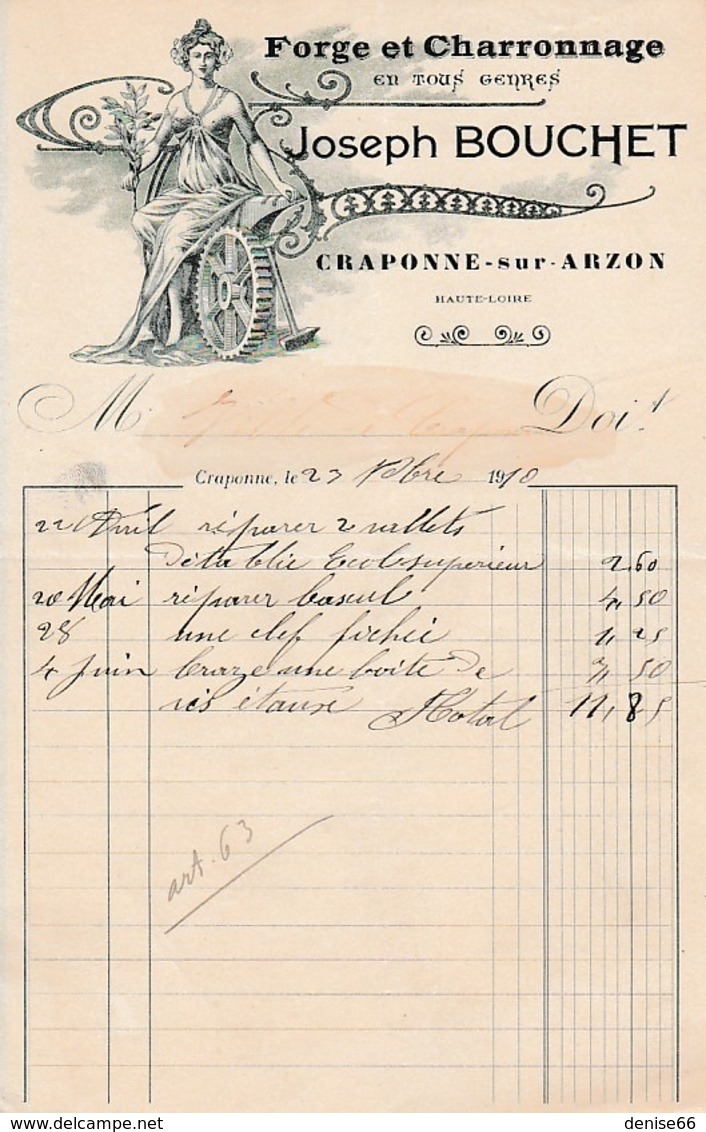 Forge et Charronnage
EN TOUS GENRES
Joseph BOUCHET
CRAPONNE-sur-ARZON
HAUTE-LOIRE
M Doit
Craponne, le 23 Xbre 1910
22 Avril réparer 2 vallets
détablie Ecol superieur 2,60
20 Mai réparer bascul 4,50
28 une clef fichéi 1,25
4 Juin braze une boite de 3,50
vis étause Total 11,85
art. 63
delcampe.net
denise66